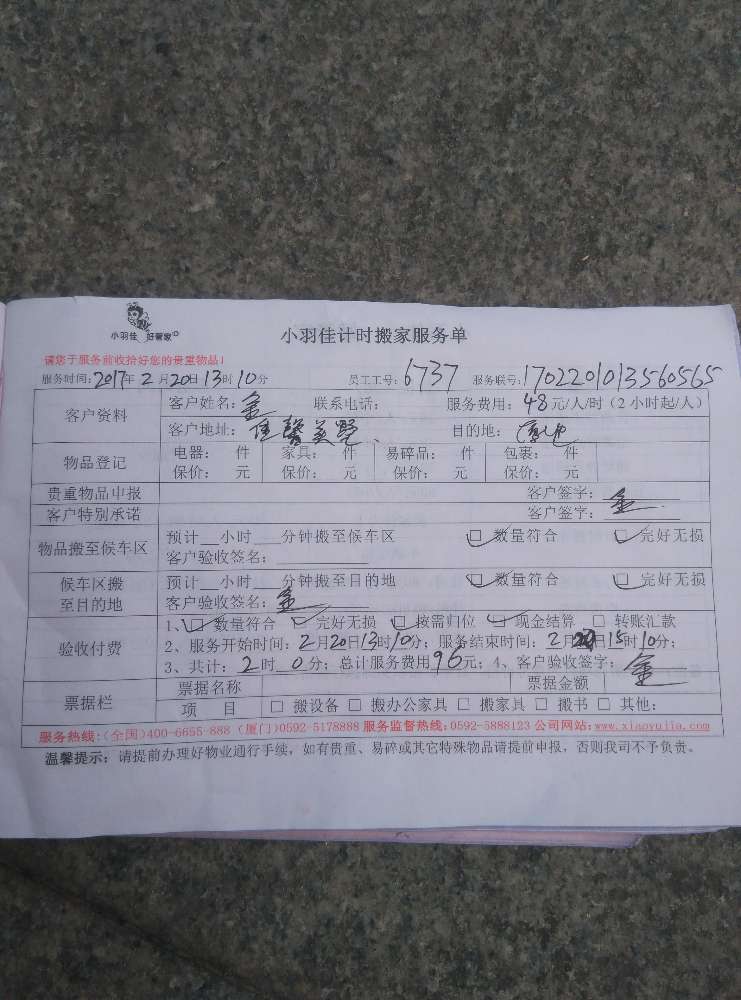 小羽佳 好管家
小羽佳计时搬家服务单
请您于服务前收拾好您的贵重物品！
服务时间：2017年2月20日13时10分 员工工号：6737 服务联号：1702201013560565
客户资料 客户姓名：金 联系电话： 服务费用：48元/人/时（2小时起/人）
客户地址：佳馨美墅、 目的地：
物品登记 电器： 件 家具： 件 易碎品： 件 包裹： 件
保价： 元 保价： 元 保价： 元 保价： 元
贵重物品申报 客户签字：金
客户特别承诺 客户签字：
物品搬至候车区 预计__小时___分钟搬至候车区 ☑ 数量符合 ☑ 完好无损
客户验收签名：
候车区搬至目的地 预计__小时___分钟搬至目的地 ☑ 数量符合 ☑ 完好无损
客户验收签名：金
验收付费 1、☑ 数量符合 ☑ 完好无损 ☑ 按需归位 ☑ 现金结算 □ 转账汇款
2、服务开始时间：2月20日13时10分；服务结束时间：2月20日15时10分；
3、共计：2时0分；总计服务费用96元；4、客户验收签字：金
票据栏 票据名称 票据金额
项 目 □ 搬设备 □ 搬办公家具 □ 搬家具 □ 搬书 □ 其他：
服务热线：(全国)400-6695-888 (厦门)0592-5178888 服务监督热线：0592-5888123 公司网站：www.xiaoyujia.com
温馨提示：请提前办理好物业通行手续，如有贵重、易碎或其它特殊物品请提前申报，否则我司不予负责。